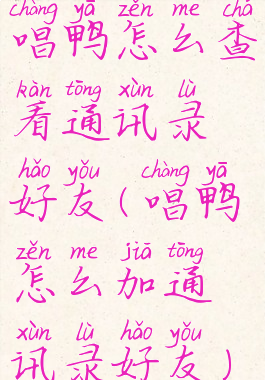 chàng yā zěn me chá
唱鸭怎么查
kàn tōng xùn lù
看通讯录
hǎo yǒu chàng yā
好友(唱鸭
zěn me jiā tōng
怎么加通
xùn lù hǎo yǒu
讯录好友)